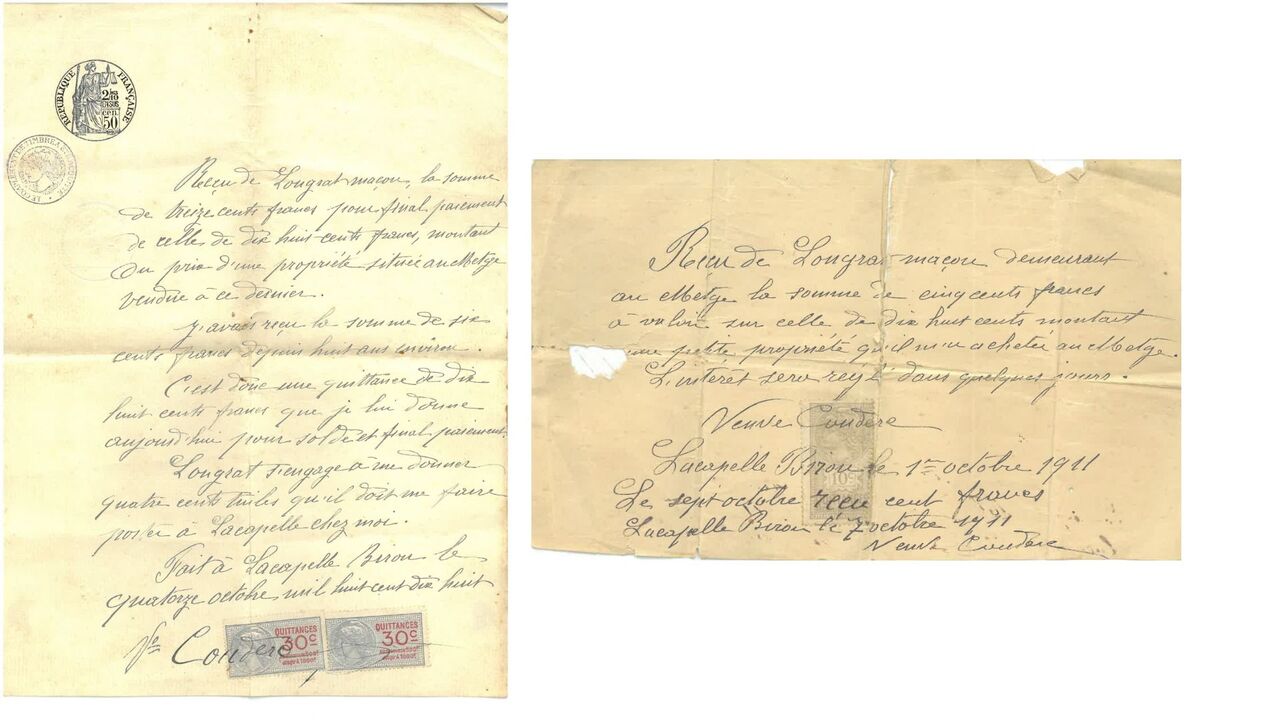 RÉPUBLIQUE FRANÇAISE
2/10
EN SUS
cen.
50
Reçu de Longrat maçon, la somme
de treize cents francs pour final paiement
de celle de dix huit cents francs, montant
du prix d'une propriété située au Metge
vendue à ce dernier.
J'avais reçu la somme de six
cents francs depuis huit ans environ.
C'est donc une quittance de dix
huit cents francs que je lui donne
aujourd'hui pour solde et final paiement.
Longrat s'engage à me donner
quatre cents tuiles qu'il doit me faire
porter à Lacapelle chez moi.
Fait à Lacapelle Biron le
quatorze octobre mil huit cent dix huit
Ve Couderc
QUITTANCES
30c
QUITTANCES
30c
Reçu de Longrat maçon demeurant
au Metge la somme de cinq cents francs
à valoir sur celle de dix huit cents montant
une petite propriété qu'il m'a acheter au Metge.
L'interêt sera réglé dans quelques jours.
Veuve Couderc
10c
Lacapelle Biron le 1er octobre 1911
Le sept octobre reçu cent francs
Lacapelle Biron le 7 octobre 1911
Veuve Couderc